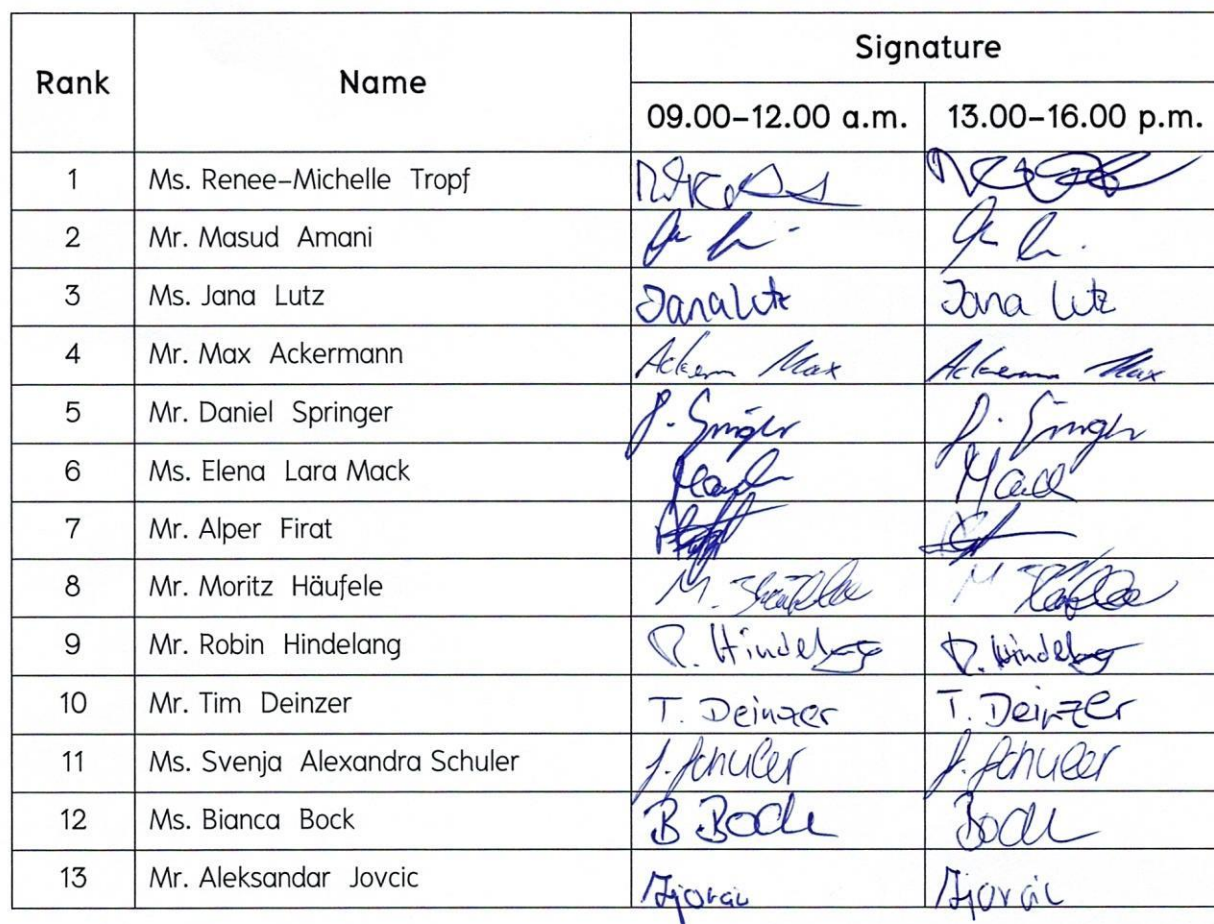 Rank Name Signature
09.00–12.00 a.m. 13.00–16.00 p.m.
1 Ms. Renee–Michelle Tropf
2 Mr. Masud Amani
3 Ms. Jana Lutz Jana Lutz Jana Lutz
4 Mr. Max Ackermann Max Max
5 Mr. Daniel Springer
6 Ms. Elena Lara Mack Mack
7 Mr. Alper Firat
8 Mr. Moritz Häufele M. M.
9 Mr. Robin Hindelang R. Hindelang R. Hindelang
10 Mr. Tim Deinzer T. Deinzer T. Deinzer
11 Ms. Svenja Alexandra Schuler S. Schuler S. Schuler
12 Ms. Bianca Bock B Bock Bock
13 Mr. Aleksandar Jovcic